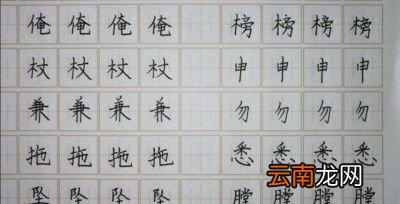 俺 俺 俺 俺 榜 榜 榜 榜
杖 杖 杖 杖 申 申 申 申
兼 兼 兼 兼 勿 勿 勿 勿
拖 拖 拖 拖 悉 悉 悉 悉
坠 坠 坠 坠 膛 膛
云南龙网